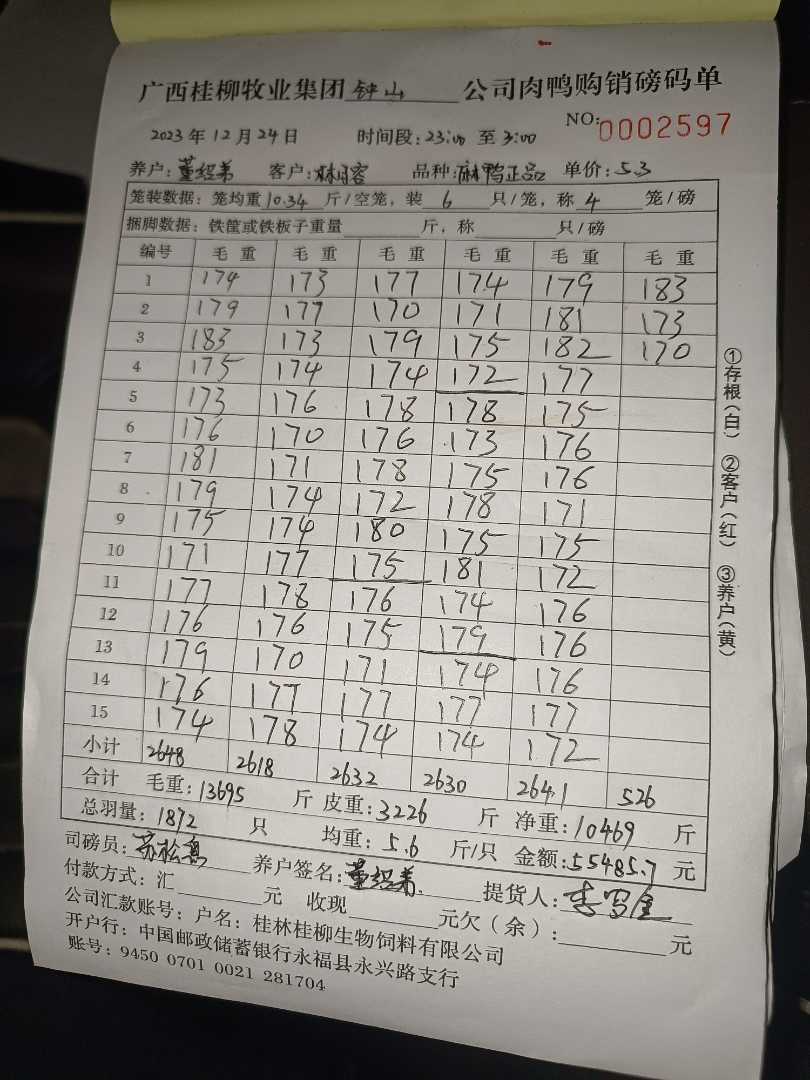 广西桂柳牧业集团钟山公司肉鸭购销磅码单
NO: 0002597
2023年12月24日 时间段:23:00至3:00
养户:董绍弟 客户:林容 品种:麻鸭正品 单价:5.3
笼装数据:笼均重10.34斤/空笼,装6只/笼,称4笼/磅
捆脚数据:铁筐或铁板子重量 斤,称 只/磅
编号 毛重 毛重 毛重 毛重 毛重 毛重
1 174 173 177 174 179 183
2 179 177 170 171 181 173
3 183 173 179 175 182 170
4 175 174 174 172 177
5 173 176 178 178 175
6 176 170 176 173 176
7 181 171 178 175 176
8 179 174 172 178 171
9 175 174 180 175 175
10 171 177 175 181 172
11 177 178 176 174 176
12 176 176 175 179 176
13 179 170 171 174 176
14 176 177 177 177 177
15 174 178 174 174 172
小计 2648 2618 2632 2630 2641 526
合计 毛重:13695斤 皮重:3226斤 净重:10469斤
总羽量:1872只 均重:5.6斤/只 金额:55485.7元
司磅员:苏松 养户签名:董绍弟 提货人:李
付款方式:汇 元 收现 元欠(余): 元
公司汇款账号:户名:桂林桂柳生物饲料有限公司
开户行:中国邮政储蓄银行永福县永兴路支行
账号:9450 0701 0021 281704
①存根(白) ②客户(红) ③养户(黄)